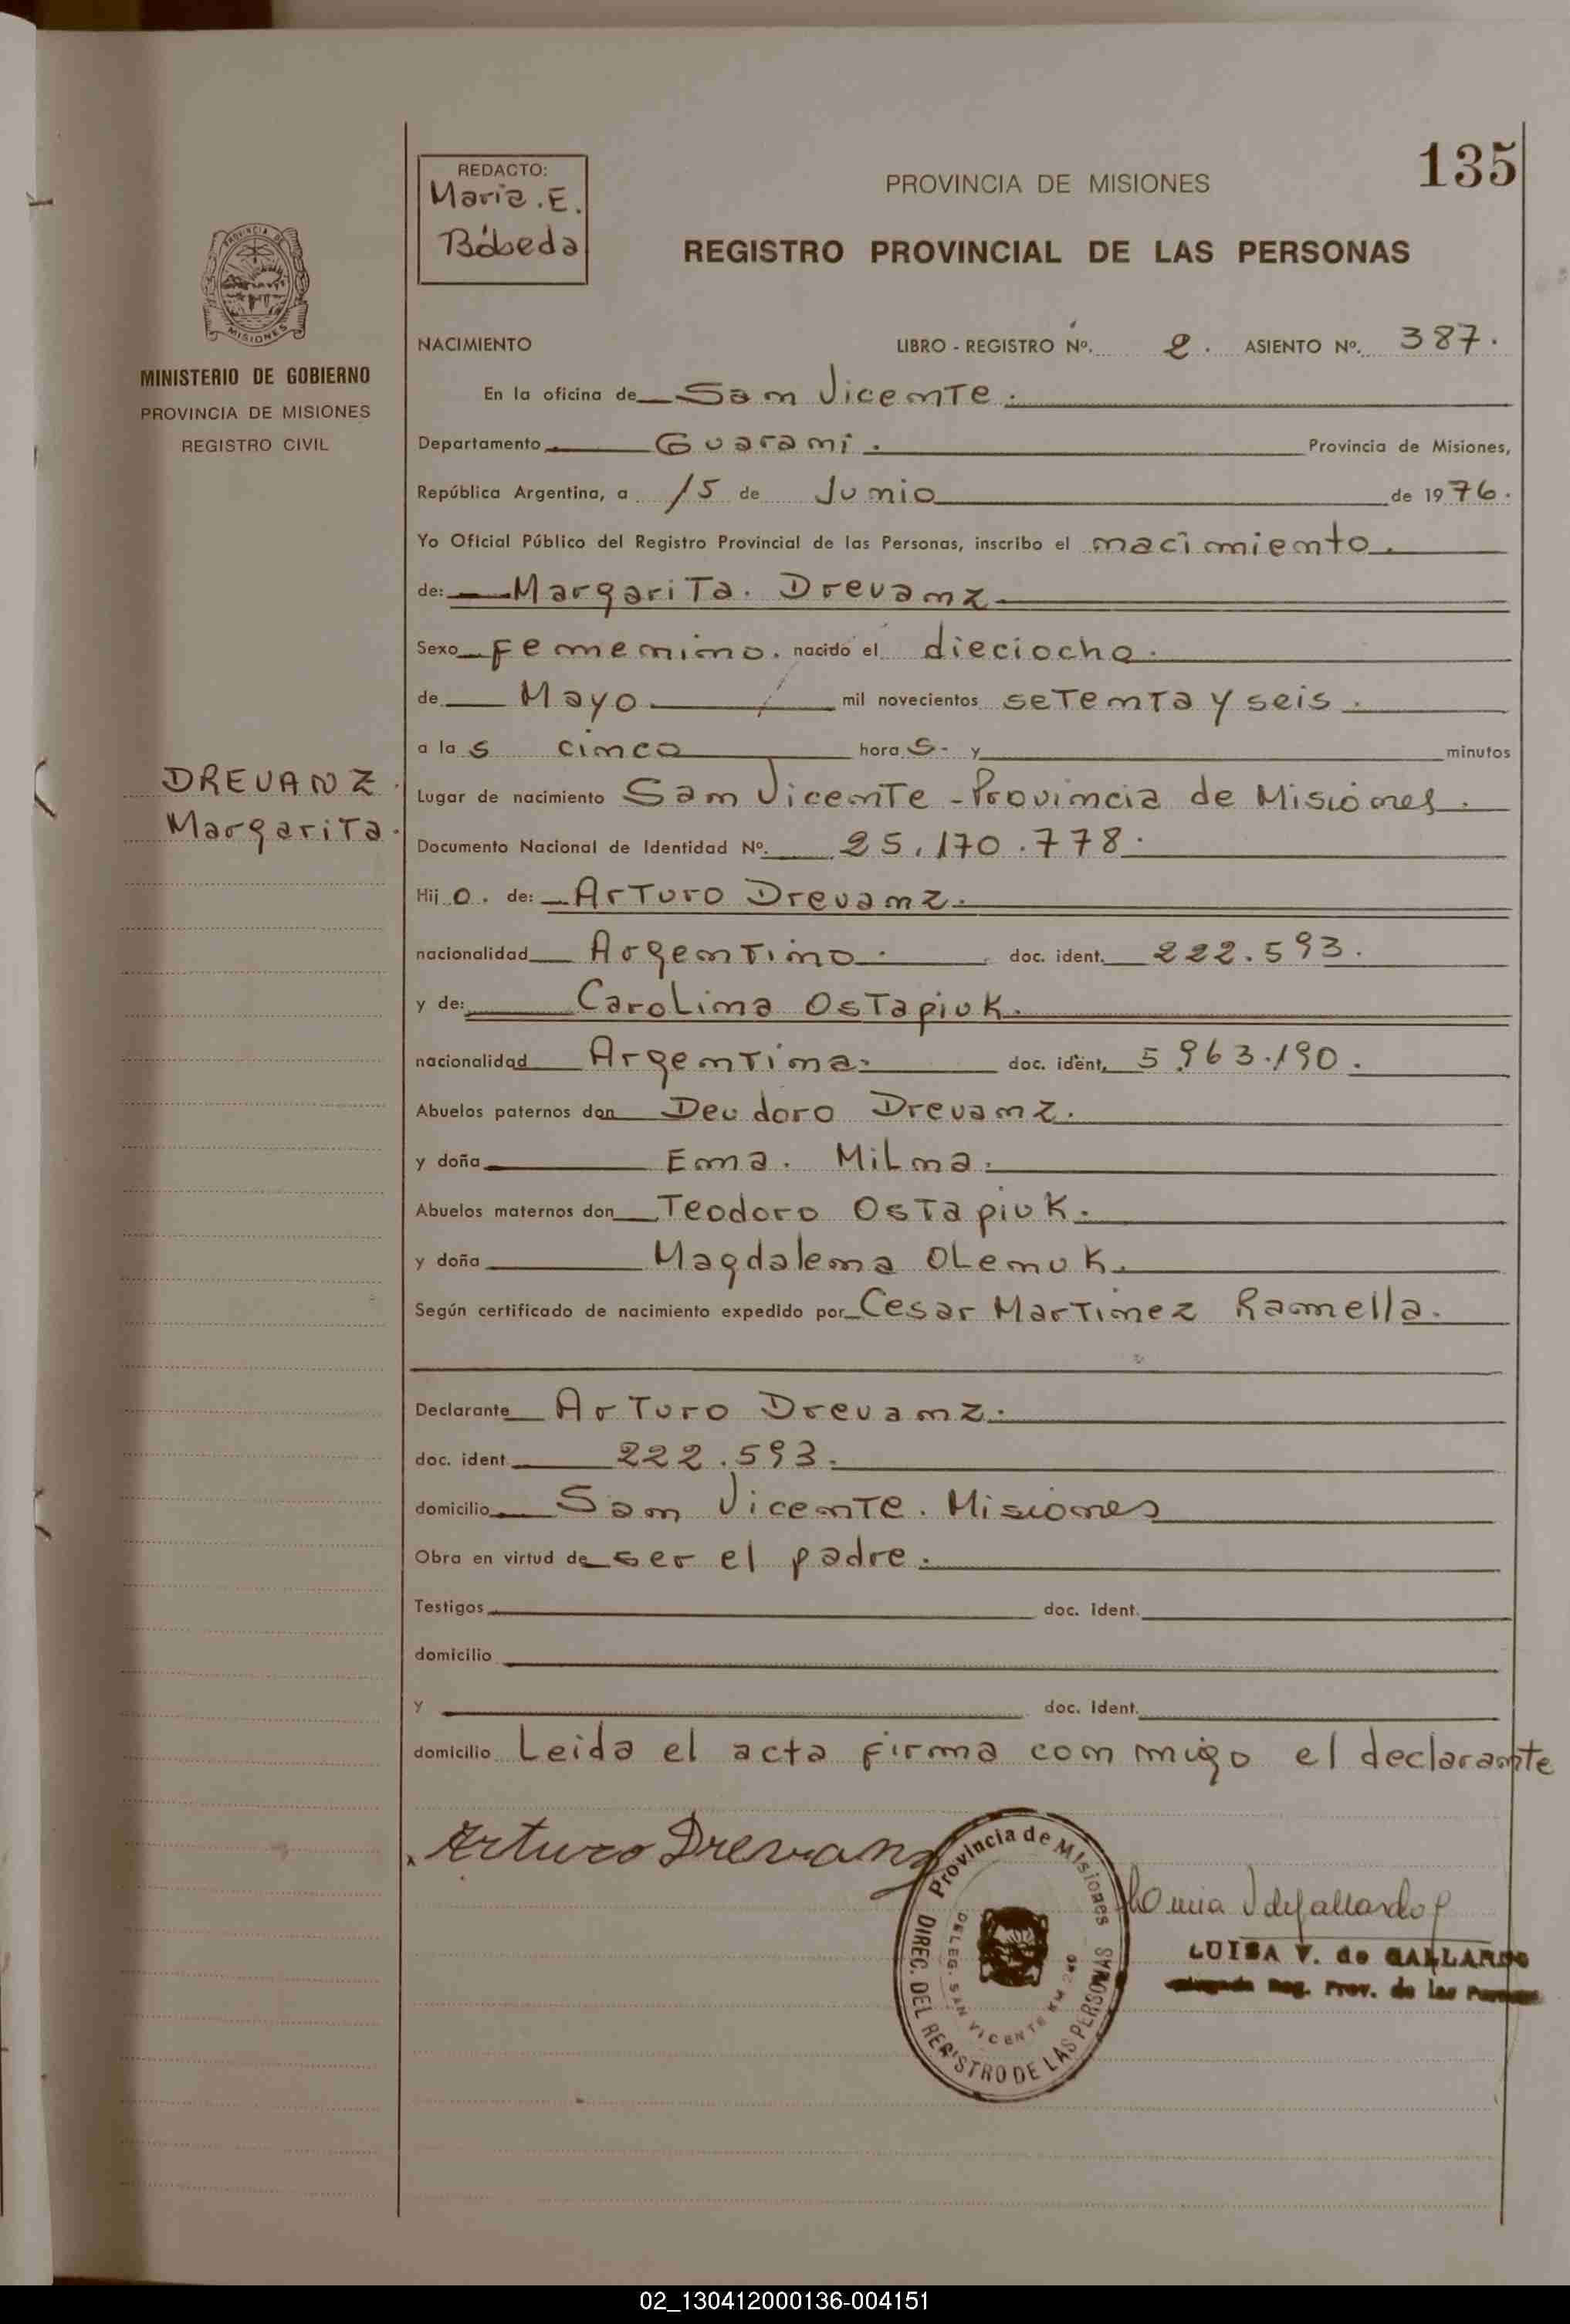 135
REDACTO:
Maria. E.
Bóbeda
PROVINCIA DE MISIONES
REGISTRO PROVINCIAL DE LAS PERSONAS
PROVINCIA DE
MISIONES
MINISTERIO DE GOBIERNO
PROVINCIA DE MISIONES
REGISTRO CIVIL
NACIMIENTO LIBRO - REGISTRO Nº. 2. ASIENTO Nº. 387.
En la oficina de San Vicente.
Departamento Guarani. Provincia de Misiones,
República Argentina, a 15 de Junio de 1976.
Yo Oficial Público del Registro Provincial de las Personas, inscribo el nacimiento.
de: Margarita. Drevanz
Sexo femenino. nacido el dieciocho.
de Mayo mil novecientos setenta y seis.
a las cinco horas. y minutos
DREVANZ.
Margarita.
Lugar de nacimiento San Vicente - Provincia de Misiones.
Documento Nacional de Identidad Nº. 25.170.778.
Hijo. de: Arturo Drevanz.
nacionalidad Argentino. doc. ident. 222.593.
y de: Carolina Ostapiuk.
nacionalidad Argentina. doc. ident. 5.963.190.
Abuelos paternos don Deudoro Drevanz.
y doña Ema. Milna.
Abuelos maternos don Teodoro Ostapiuk.
y doña Magdalena Olenuk.
Según certificado de nacimiento expedido por Cesar Martinez Ramella.
Declarante Arturo Drevanz.
doc. ident. 222.593.
domicilio San Vicente. Misiones
Obra en virtud de ser el padre.
Testigos doc. ident.
domicilio
y doc. Ident.
domicilio Leida el acta firma con migo el declarante
Arturo Drevanz
Provincia de Misiones
DIREC. DEL REGISTRO DE LAS PERSONAS
DELEG. SAN VICENTE KM 240
LUISA V. de GALLARDO
Reg. Prov. de las Personas
02_130412000136-004151